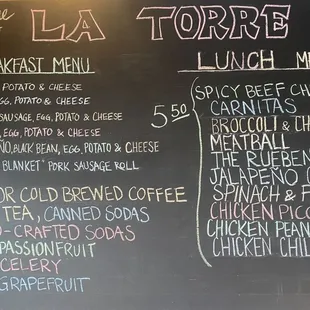 LA TORRE
AKFAST MENU
POTATO & CHEESE
EGG, POTATO & CHEESE
SAUSAGE, EGG, POTATO & CHEESE
, EGG, POTATO & CHEESE
ÑO, BLACK BEAN, EGG, POTATO & CHEESE
BLANKET" PORK SAUSAGE ROLL
OR COLD BREWED COFFEE
TEA, CANNED SODAS
-CRAFTED SODAS
PASSIONFRUIT
CELERY
GRAPEFRUIT
5.50
LUNCH ME
SPICY BEEF CH
CARNITAS
BROCCOLI & CH
MEATBALL
THE RUEBEN
JALAPEÑO C
SPINACH & F
CHICKEN PICC
CHICKEN PEAN
CHICKEN CHIL